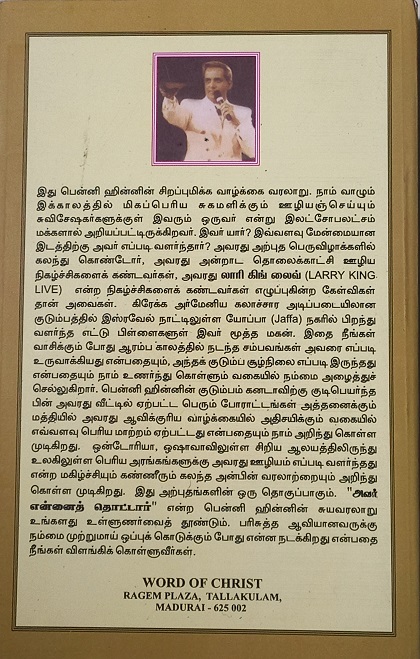 இது பென்னி ஹின்னின் சிறப்புமிக்க வாழ்க்கை வரலாறு. நாம் வாழும்
இக்காலத்தில் மிகப்பெரிய சுகமளிக்கும் ஊழியஞ்செய்யும்
சுவிசேஷகர்களுக்குள் இவரும் ஒருவர் என்று இலட்சோபலட்சம்
மக்களால் அறியப்பட்டிருக்கிறவர். இவர் யார்? இவ்வளவு மேன்மையான
இடத்திற்கு அவர் எப்படி வளர்ந்தார்? அவரது அற்புத பெருவிழாக்களில்
கலந்து கொண்டோர், அவரது அன்றாட தொலைக்காட்சி ஊழிய
நிகழ்ச்சிகளைக் கண்டவர்கள், அவரது லாரி கிங் லைவ் (LARRY KING
LIVE) என்ற நிகழ்ச்சிகளைக் கண்டவர்கள் எழுப்புகின்ற கேள்விகள்
தான் அவைகள். கிரேக்க அர்மேனிய கலாச்சார அடிப்படையிலான
குடும்பத்தில் இஸ்ரவேல் நாட்டிலுள்ள யோப்பா (Jaffa) நகரில் பிறந்து
வளர்ந்த எட்டு பிள்ளைகளுள் இவர் மூத்த மகன். இதை நீங்கள்
வாசிக்கும் போது ஆரம்ப காலத்தில் நடந்த சம்பவங்கள் அவரை எப்படி
உருவாக்கியது என்பதையும், அந்தக் குடும்ப சூழ்நிலை எப்படி இருந்தது
என்பதையும் நாம் உணர்ந்து கொள்ளும் வகையில் நம்மை அழைத்துச்
செல்லுகிறார். பென்னி ஹின்னின் குடும்பம் கனடாவிற்கு குடிபெயர்ந்த
பின் அவரது வீட்டில் ஏற்பட்ட பெரும் போராட்டங்கள் அத்தனைக்கும்
மத்தியில் அவரது ஆவிக்குரிய வாழ்க்கையில் அதிசயிக்கும் வகையில்
எவ்வளவு பெரிய மாற்றம் ஏற்பட்டது என்பதையும் நாம் அறிந்து கொள்ள
முடிகிறது. ஒன்டோரியா, ஒஷாவாவிலுள்ள சிறிய ஆலயத்திலிருந்து
உலகிலுள்ள பெரிய அரங்கங்களுக்கு அவரது ஊழியம் எப்படி வளர்ந்தது
என்ற மகிழ்ச்சியும் கண்ணீரும் கலந்த அன்பின் வரலாற்றையும் அறிந்து
கொள்ள முடிகிறது. இது அற்புதங்களின் ஒரு தொகுப்பாகும். "அவர்
என்னைத் தொட்டார்" என்ற பென்னி ஹின்னின் சுயவரலாறு
உங்களது உள்ளுணர்வைத் தூண்டும். பரிசுத்த ஆவியானவருக்கு
நம்மை முற்றுமாய் ஒப்புக் கொடுக்கும் போது என்ன நடக்கிறது என்பதை
நீங்கள் விளங்கிக் கொள்ளுவீர்கள்.
WORD OF CHRIST
RAGEM PLAZA, TALLAKULAM,
MADURAI - 625 002